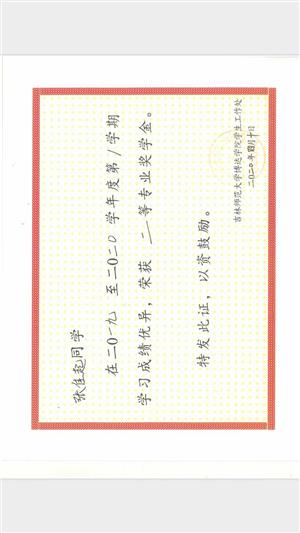 张佳起同学
在二〇一九至二〇二〇学年度第1学期
学习成绩优异，荣获二等专业奖学金。
特发此证，以资鼓励。
吉林师范大学博达学院学生工作处
二〇二〇年四月十日